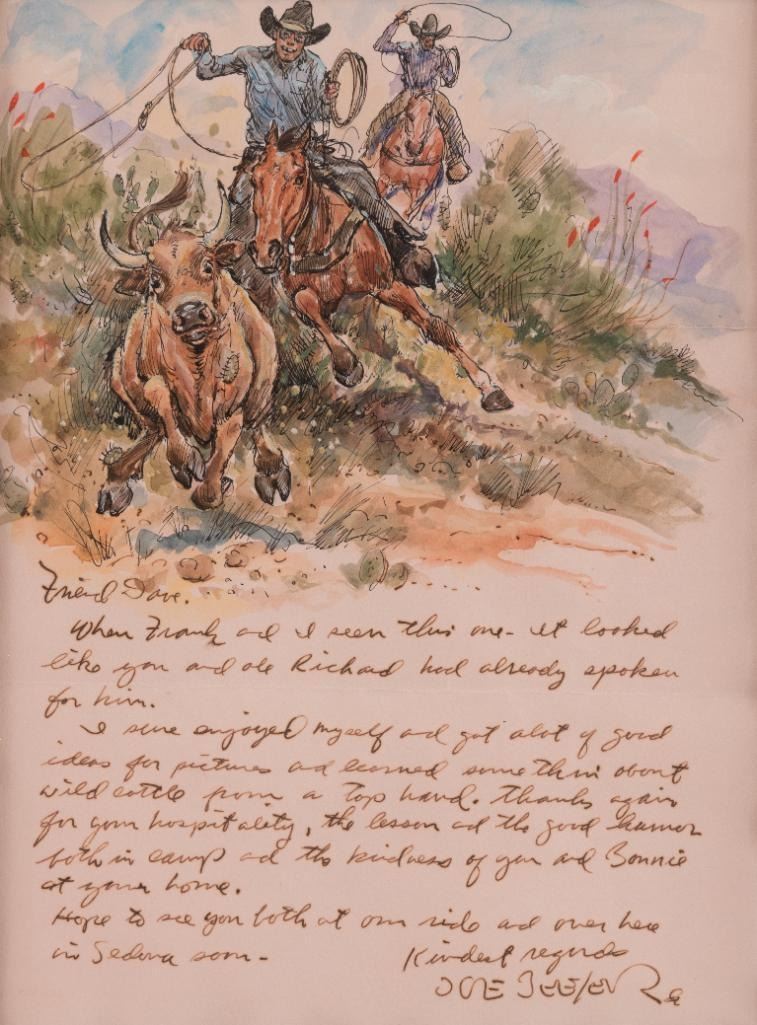 Friend Dave.
When Frank ad I seen this one - it looked
like you and ole Richard had already spoken
for him.
I sure enjoyed myself ad got alot of good
ideas for pictures ad learned some thin about
wild cattle from a top hand. Thanks again
for your hospitality, the lesson ad the good humor
both in camp ad the kindness of you and Bonnie
at your home.
Hope to see you both at our ride ad over here
in Sedona soon -
Kindest regards
JOE BEELER